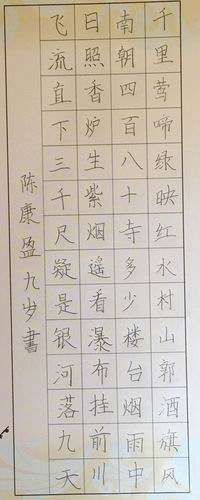 千里莺啼绿映红水村山郭酒旗风
南朝四百八十寺多少楼台烟雨中
日照香炉生紫烟遥看瀑布挂前川
飞流直下三千尺疑是银河落九天
陈康盈九岁書